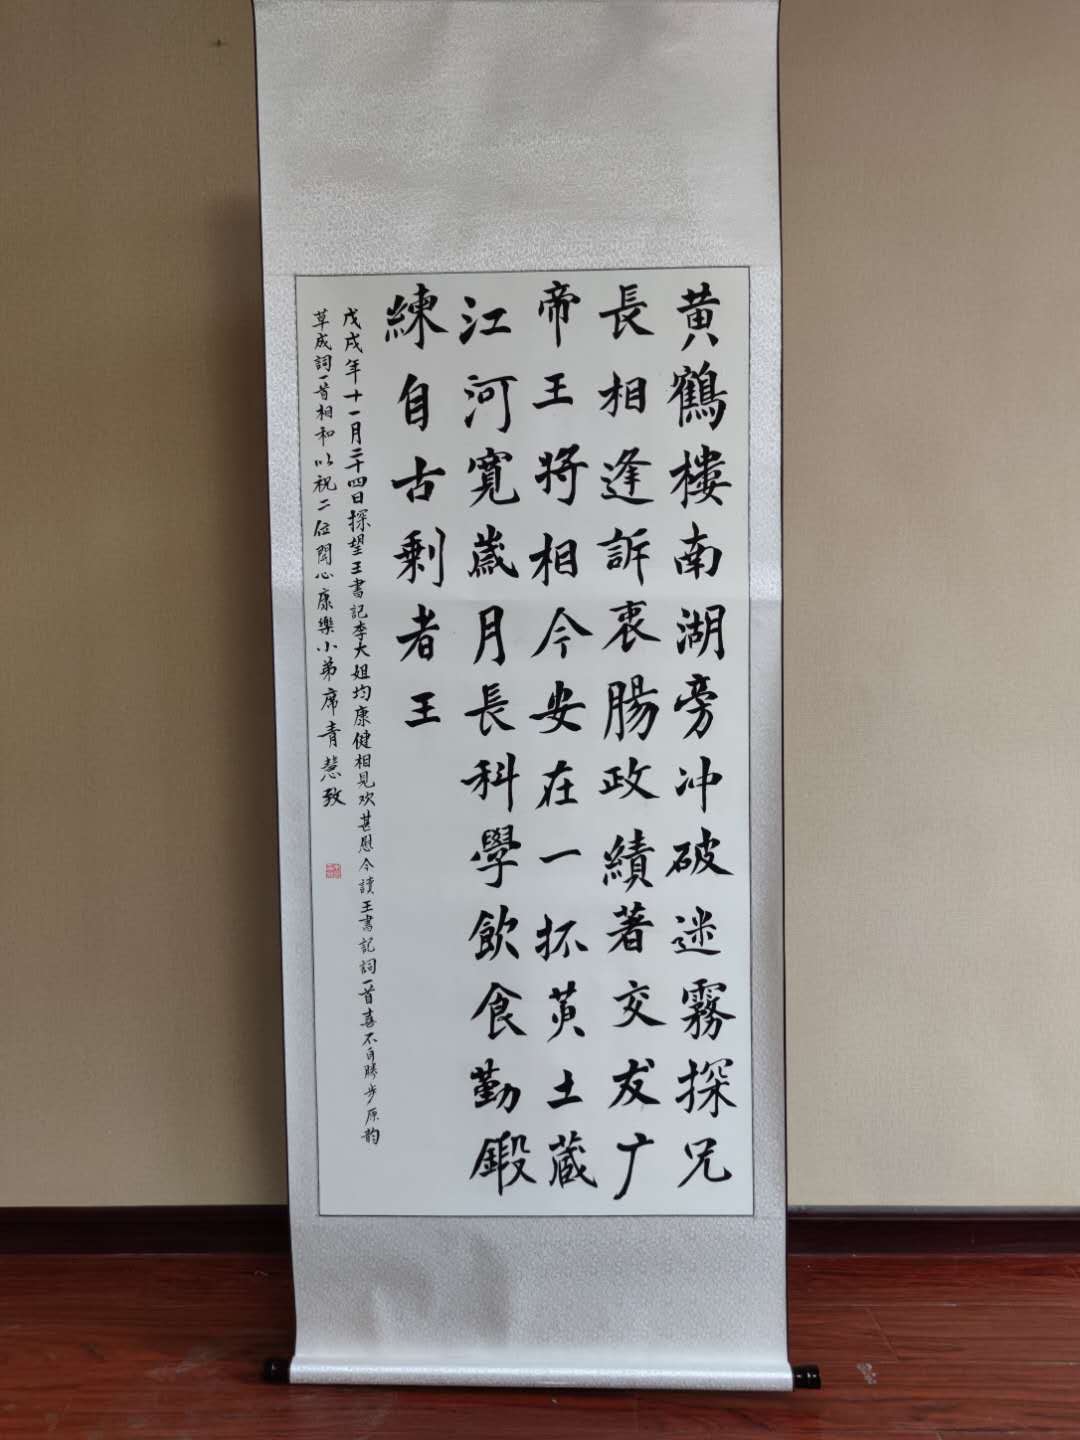 黄鶴樓南湖旁冲破迷霧探兄
長相逢訴衷腸政績著交友广
帝王将相今安在一抔黄土蔵
江河寛歳月長科學飲食勤鍛
練自古剩者王
戊戌年十一月二十四日探望王書記李大姐均康健相見欢甚慰今讀王書記詞一首喜不自勝步原韵
草成詞一首相和以祝二位開心康樂小弟席青慧致